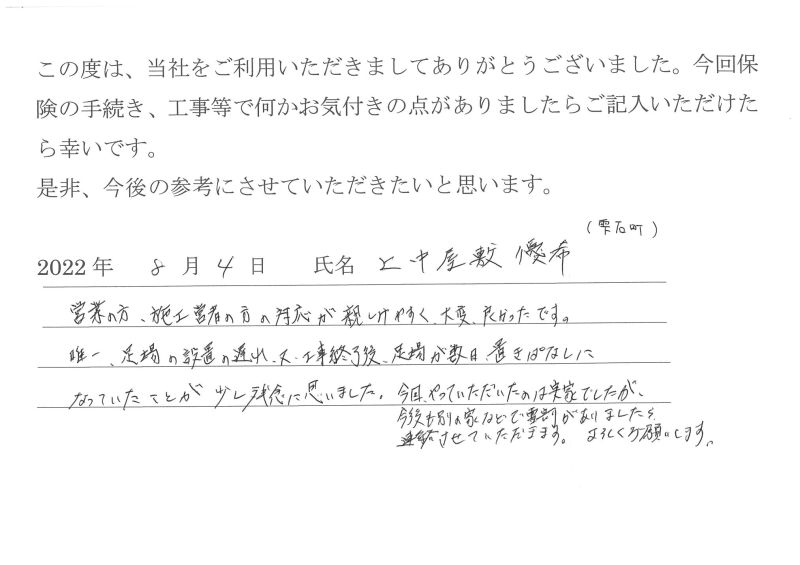 この度は、当社をご利用いただきましてありがとうございました。今回保
険の手続き、工事等で何かお気付きの点がありましたらご記入いただけた
ら幸いです。
是非、今後の参考にさせていただきたいと思います。
(雫石町)
2022年 8月4日 氏名 上中屋敷 優希
営業の方、施工業者の方の対応が親しみやすく、大変、良かったです。
唯一、足場の設置の遅れ、又、工事終了後、足場が数日置きぱなしに
なっていたことが少し残念に思いました。今回、やっていただいたのは実家でしたが、
今後も別の家などで雪割がありましたら
連絡させていただきます。よろしくお願いします。